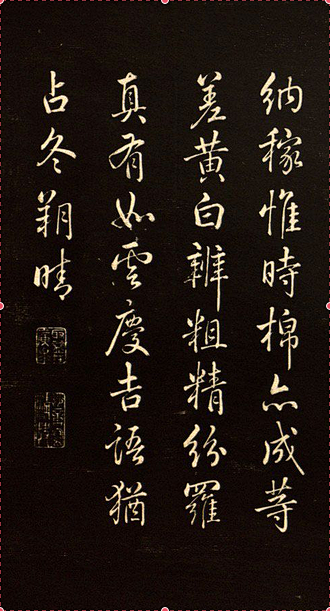 納稼惟時棉亦成等
差黃白辦粗精紛羅
真有如雲慶吉語猶
占冬朔晴